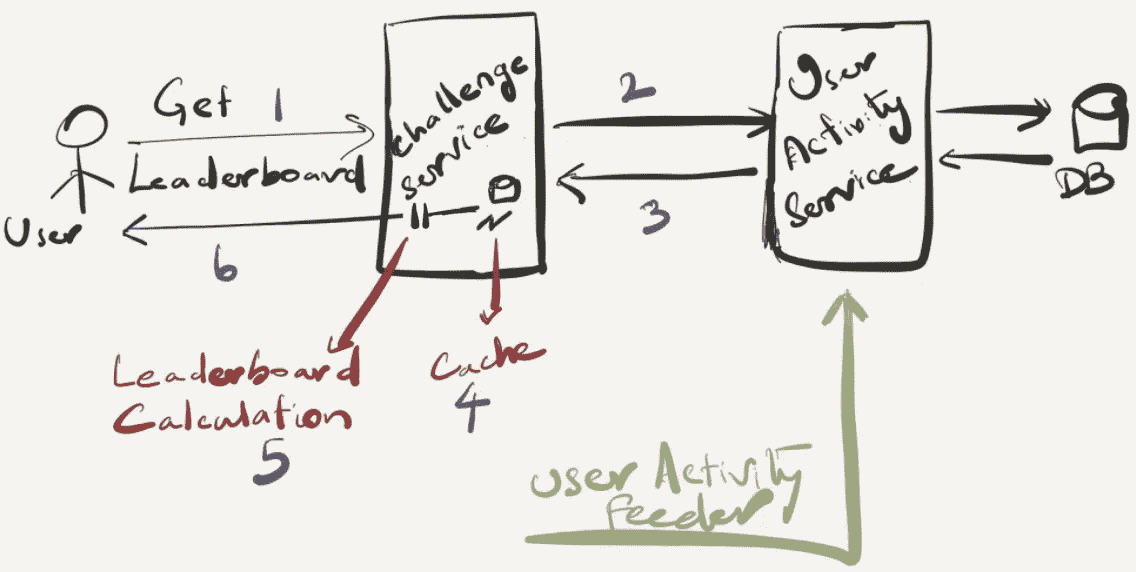 Get 1
Leaderboard
User
6
Challenge
Service
2
3
User
Activity
Service
DB
Leaderboard
Calculation
5
Cache
4
User Activity
Feeder